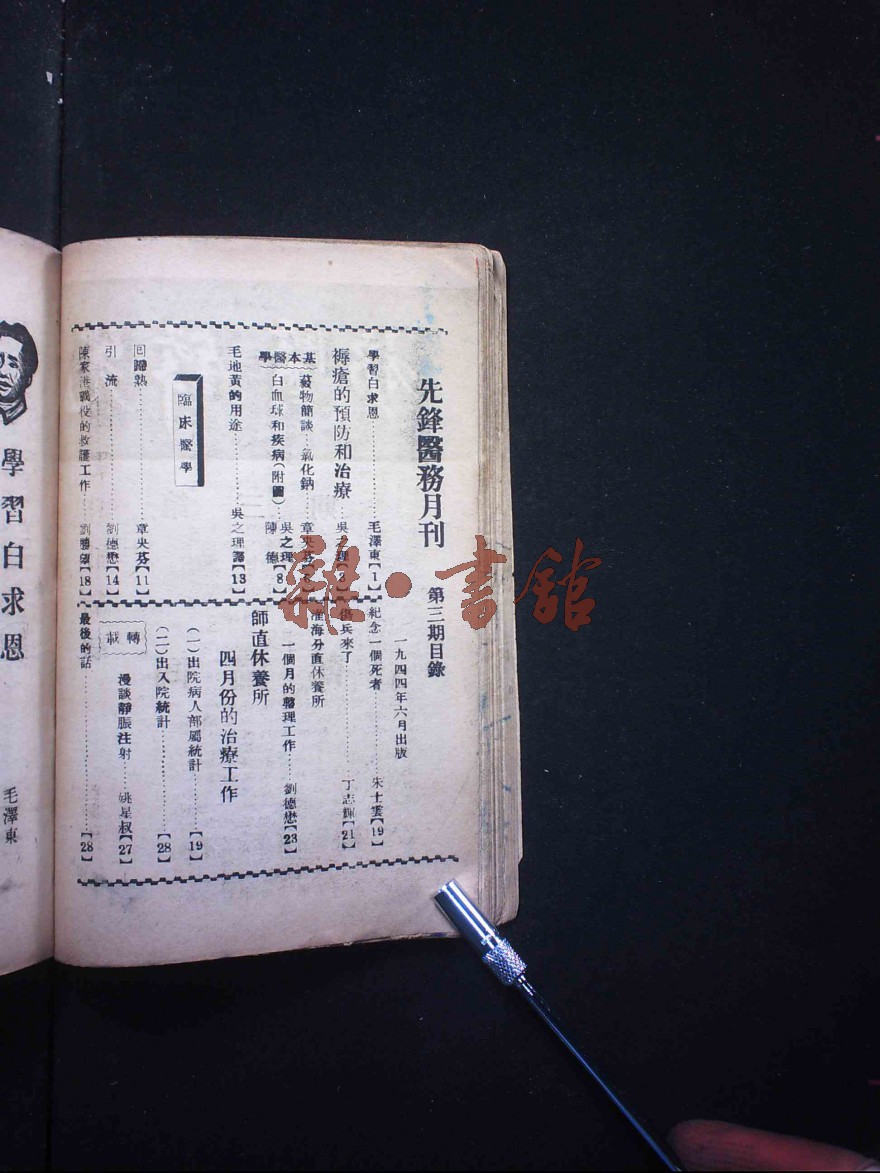 先鋒醫務月刊
第三期目錄
一九四四年六月出版
學習白求恩 毛澤東【1】
褥瘡的預防和治療 吳之理
基本醫學
藥物簡談 氯化鈉 章央芬
白血球和疾病(附圖) 吳之理 陳德【8】
毛地黃的用途 吳之理譯【13】
臨床醫學
回歸熱 章央芬【11】
引流 劉德懋【14】
陳家港戰役的救護工作 【18】
紀念一個死者 朱士雲【19】
兵來了 丁志輝【21】
淮海分直休養所
一個月的整理工作 劉德懋【23】
師直休養所
四月份的治療工作
(一)出院病人部屬統計 【19】
(二)出入院統計 【28】
轉載
漫談靜脹注射 姚星叔【27】
最後的話 【28】
學習白求恩
毛澤東
雜·書館